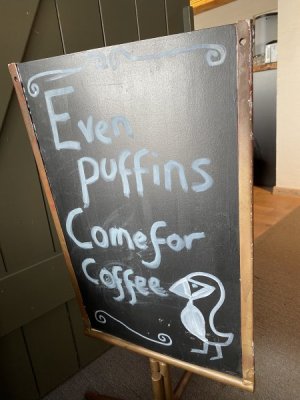 Even
puffins
Come for
Coffee